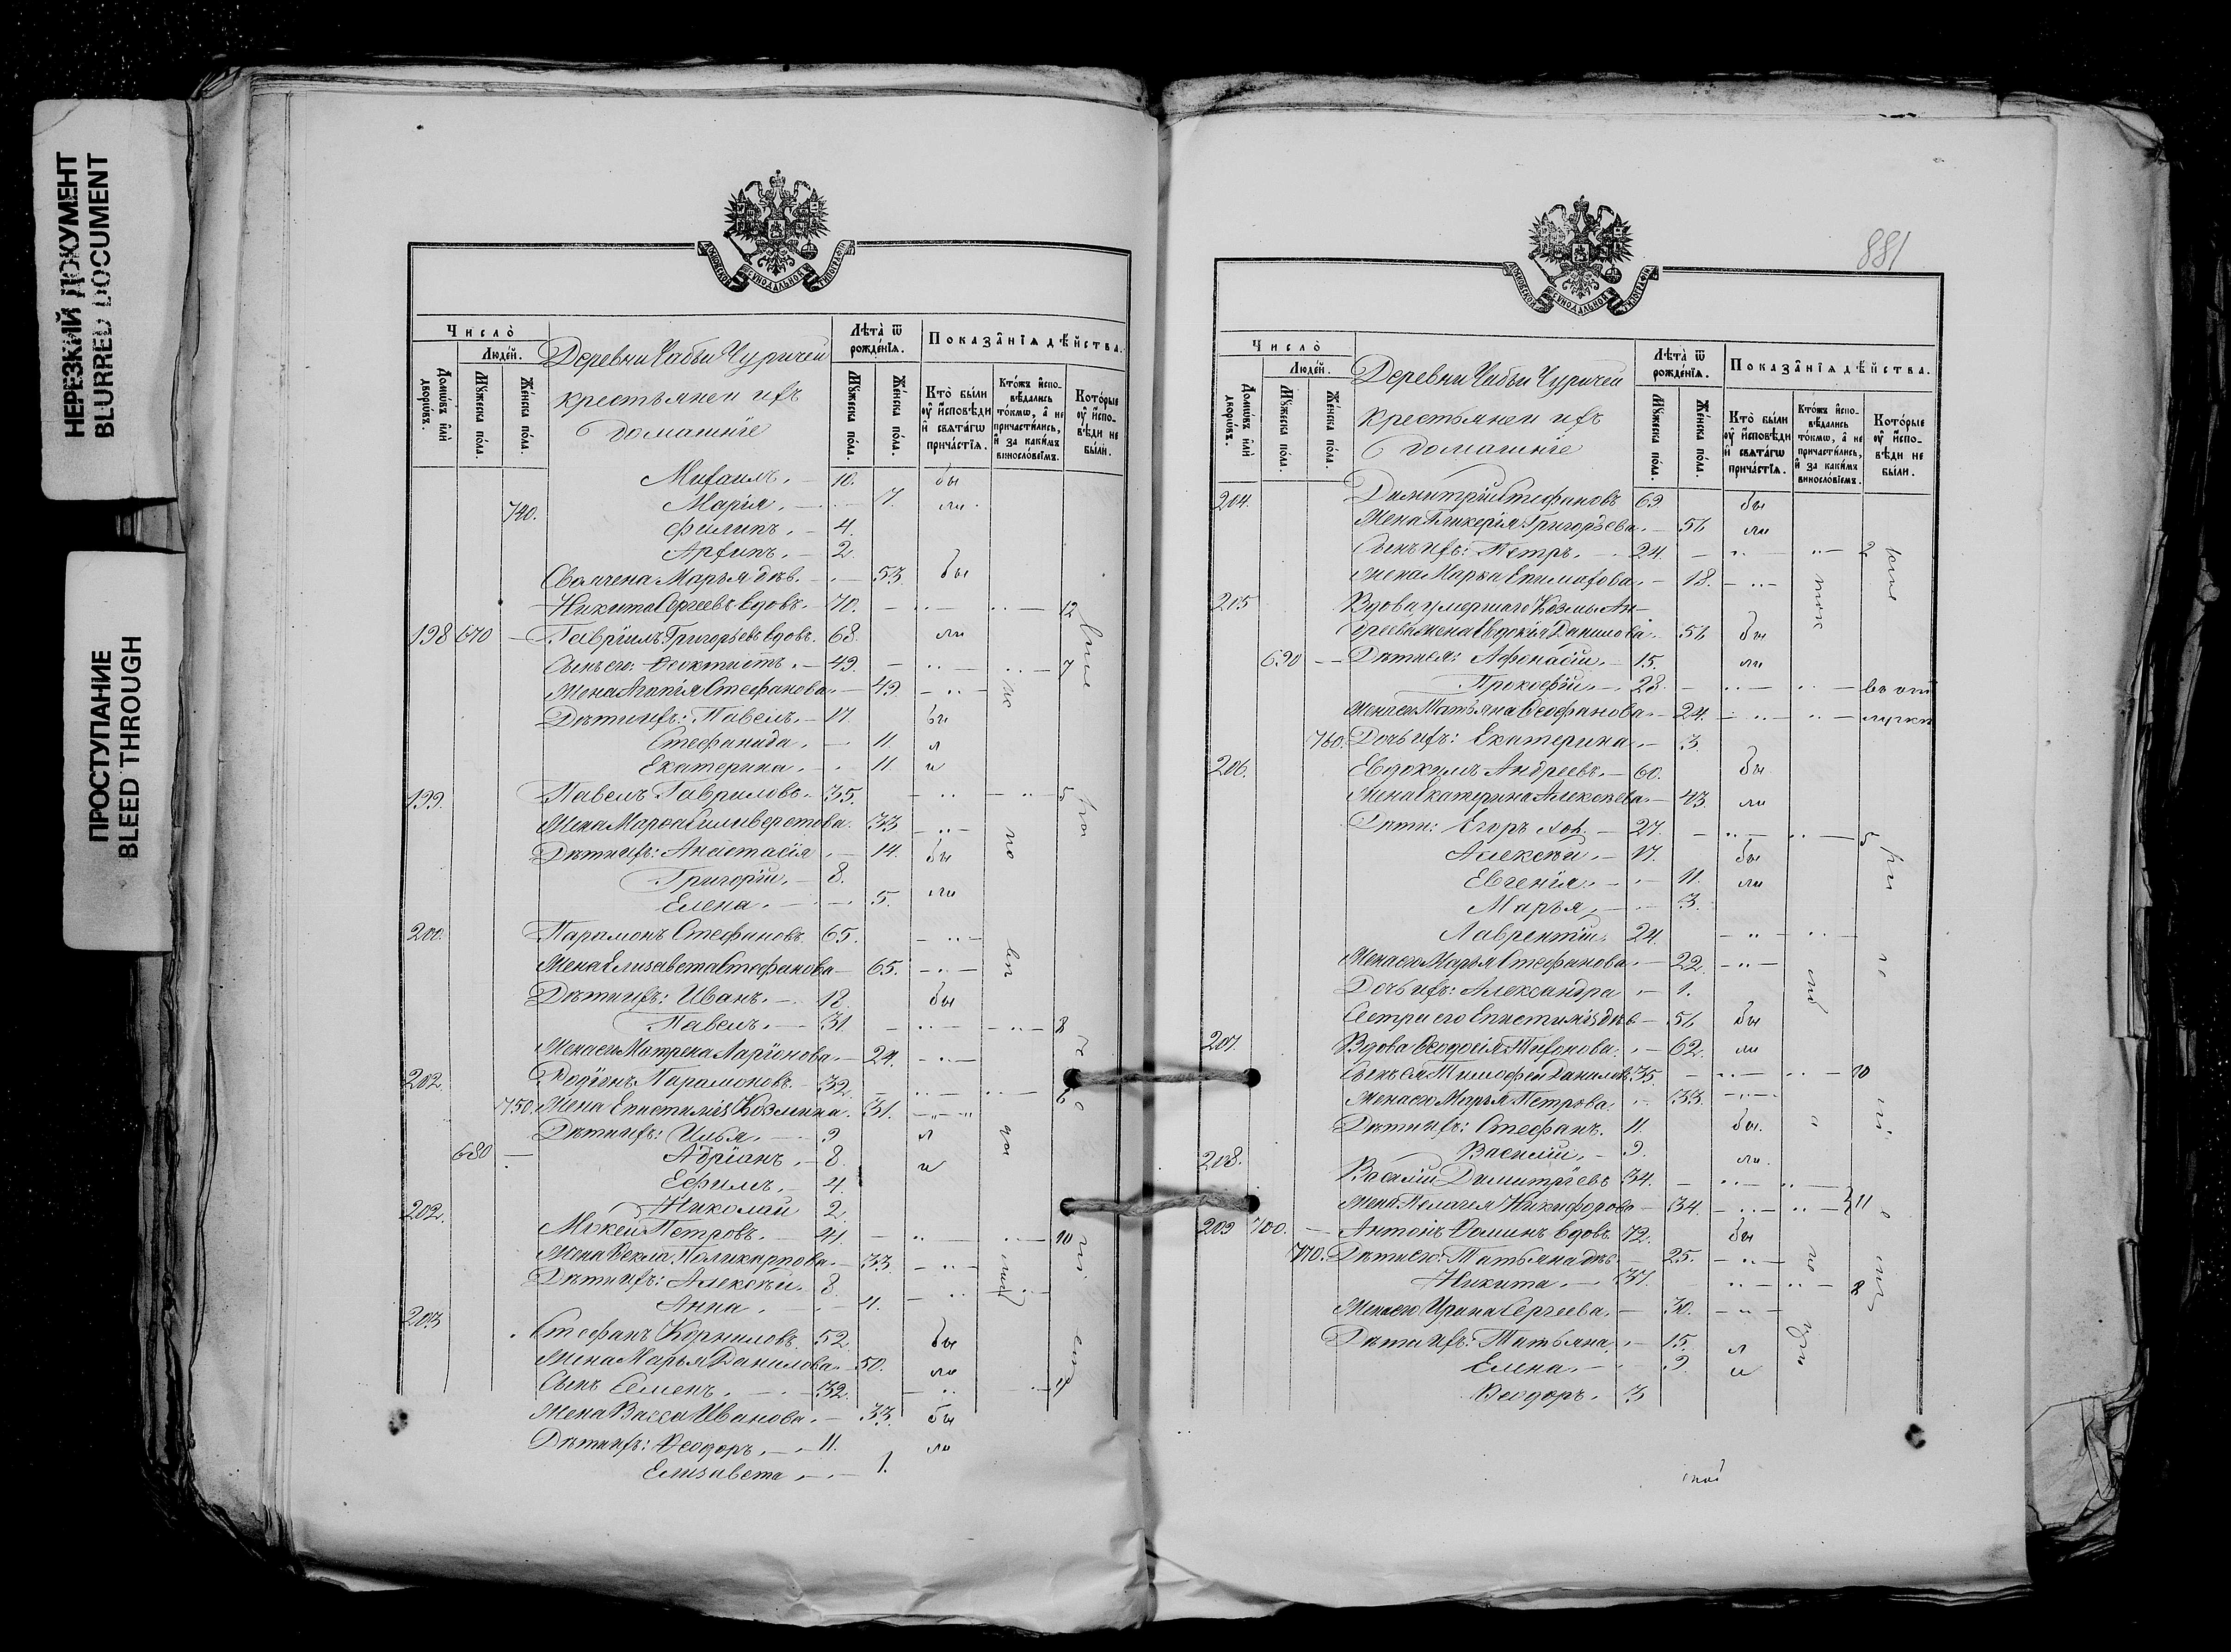 НЕРЕЗКИЙ ДОКУМЕНТ
BLURRED DOCUMENT
ПРОСТУПАНИЕ
BLEED THROUGH
МОСКОВСКОЙ СѴНОДАЛЬНОЙ ТИПОГРАФІИ
Число̀
Людей.
Домѡвъ и҆лѝ дворѡвъ.
Мꙋжеска пола.
Женска пола.
Деревни Чабьи Чуричей
крестьянеи ихъ
домашніе
Лѣта̀ ѿ рожденїѧ.
Мꙋжеска пола.
Женска пола.
Показанїѧ дѣйства.
Кто̀ были ᲂу҆ и҆сповѣди и҆ свѧтагѡ причастїѧ.
Кто́жъ и҆сповѣдались то́кмѡ, а҆ не причастились, и҆ за каки́мъ винословїемъ.
Кото́рые ᲂу҆ и҆сповѣди не были.
Михаилъ. 10. бы
740. Марія. 7. ли.
Филипъ. 4.
Архипъ. 2.
Своячена Марья дѣв. 53. бы
Никита Сергеевъ вдовъ. 70. 12
198 670 Гавріилъ Григорьевъ вдовъ. 68. ли
Сынъ его: Ѳеоктистъ. 49. 7
Жена Агапія Стефанова. 49.
Дѣти ихъ: Павелъ. 17. бы
Стефанида. 11. л
Екатерина. 11. и
199. Павелъ Гавриловъ. 35. 5
Жена Марѳа Силиверстова. 33
Дѣти ихъ: Анастасія 14. бы
Григорій. 8.
Елена. 5. ли
200. Парамонъ Стефановъ 65.
Жена Елисавета Стефанова 65.
Дѣти ихъ: Иванъ. 12. бы
Павелъ. 31. 8
Жена его Матрена Ларіонова. 24.
202. Родіонъ Парамоновъ. 32. 6
750. Жена Епистимія Козмина. 31.
Дѣти ихъ: Илья. 9 л
680 Адріанъ. 8. и
Ефимъ. 4.
Николай 2.
202. Мокей Петровъ. 41. 10
Жена Ѳекла Поликарпова. 33.
Дѣти ихъ: Алексѣй. 8.
Анна. 4.
203 Стефанъ Корниловъ. 52. бы
Жена Марья Данилова. 50. ли
Сынъ Семенъ. 32.
Жена Васса Иванова. 33. бы
Дѣти ихъ: Ѳеодоръ. 11. ли
Елисавета 1.
881
МОСКОВСКОЙ СѴНОДАЛЬНОЙ ТИПОГРАФІИ
Число̀
Людей.
Домѡвъ и҆лѝ дворѡвъ.
Мꙋжеска пола.
Женска пола.
Деревни Чабьи Чуричей
крестьянеи ихъ
домашніе
Лѣта̀ ѿ рожденїѧ.
Мꙋжеска пола.
Женска пола.
Показанїѧ дѣйства.
Кто̀ были ᲂу҆ и҆сповѣди и҆ свѧтагѡ причастїѧ.
Кто́жъ и҆сповѣдались то́кмѡ, а҆ не причастились, и҆ за каки́мъ винословїемъ.
Кото́рые ᲂу҆ и҆сповѣди не были.
204. Димитрій Стефановъ 69. бы
Жена Гликерія Григорьева. 51. ли
Сынъ ихъ: Петръ. 24. 2
Жена Марѳа Епимахова. 18.
205 Вдова умершаго Козмы Ан-
дреева жена Евдокія Данилова. 51. бы
690 Дѣти ея: Афонасій. 15. ли
Прокофій. 28. въ от
Жена его Татьяна Ѳеофанова. 24. лучки
760. Дочь ихъ: Екатерина. 3.
206. Евдокимъ Андреевъ. 60. бы
Жена Екатерина Алексѣева. 43. ли
Дѣти: Егоръ хол. 27. 5
Алексѣй. 17. бы
Евгенія. 11. ли
Марья. 3.
Лаврентій. 24.
Жена его Марья Стефанова. 22.
Дочь ихъ: Александра 1.
Сестра его Епистимія дѣв 51. бы
207. Вдова Ѳеодосія Тихонова. 62. ли
Сынъ ея Тимофей Даниловъ 35. 10
Жена его Марья Петрова. 33.
Дѣти ихъ: Стефанъ. 11. бы.
Василій. 9. ли.
208. Василій Димитріевъ 34.
Жена Пелагея Никифорова 34. 11
209 700. Антонъ Ѳоминъ вдовъ. 72. бы
770. Дѣти его: Татьяна дѣв. 25.
Никита. 37. 8
Жена его Ирина Сергеева. 30.
Дѣти ихъ: Татьяна. 15. л
Елена. 9. и
Ѳеодоръ. 3